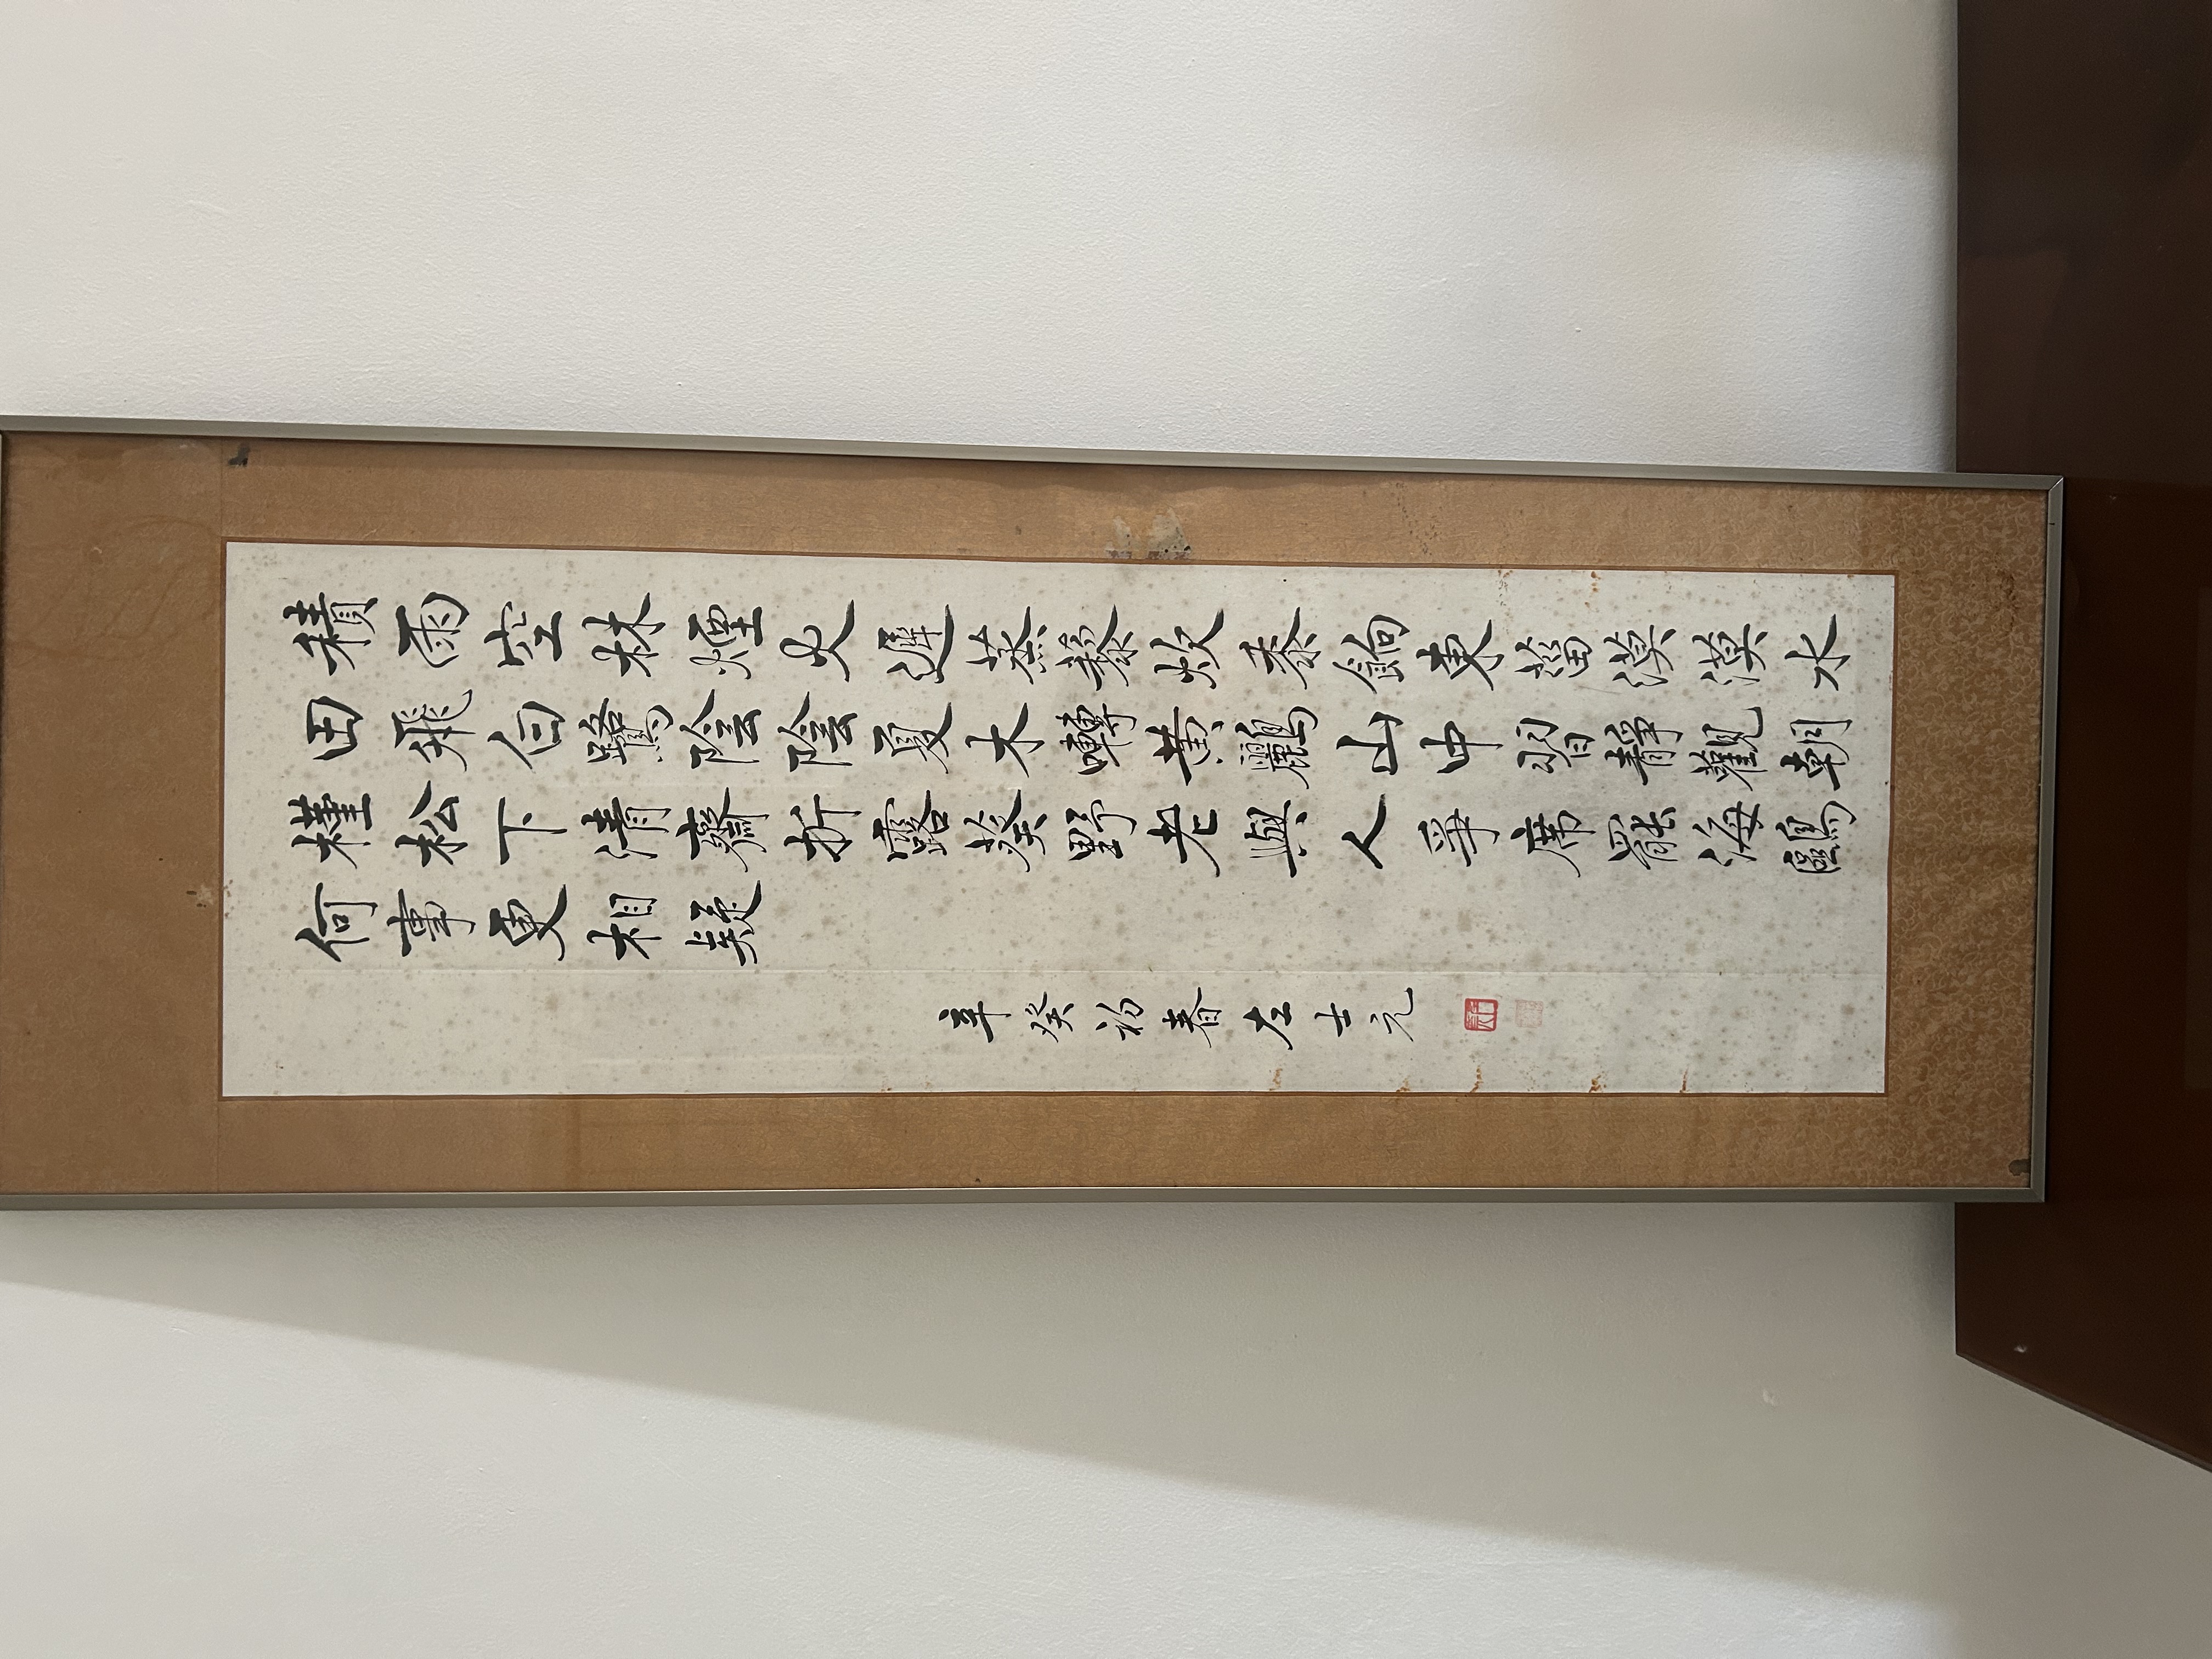 積雨空林煙火遲蒸藜炊黍餉東菑漠漠水
田飛白鷺陰陰夏木囀黃鸝山中習靜觀朝
槿松下清齋折露葵野老與人爭席罷海鷗
何事更相疑
辛癸初春左士元